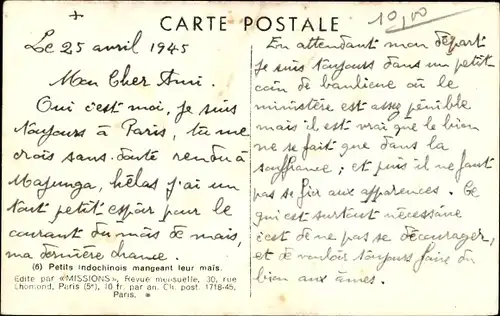 CARTE POSTALE
10,00
Le 25 avril 1945
Mon Cher Ami.
Oui c'est moi, je suis
toujours à Paris, tu me
crois sans doute rendu à
Majunga, hélas j'ai un
tout petit espoir pour le
courant du mois de mai,
ma dernière chance.
(6) Petits Indochinois mangeant leur maïs.
Édité par «MISSIONS», Revue mensuelle, 30, rue
Lhomond, Paris (5e), 10 fr. par an. Ch. post. 1718-45,
Paris.
En attendant mon départ
je suis toujours dans un petit
coin de banlieue où le
ministère est assez pénible
mais il est vrai que le bien
ne se fait que dans la
souffrance; et puis il ne faut
pas se fier aux apparences. Ce
qui est surtout nécessaire
c'est de ne pas se décourager,
et de vouloir toujours faire du
bien aux âmes.